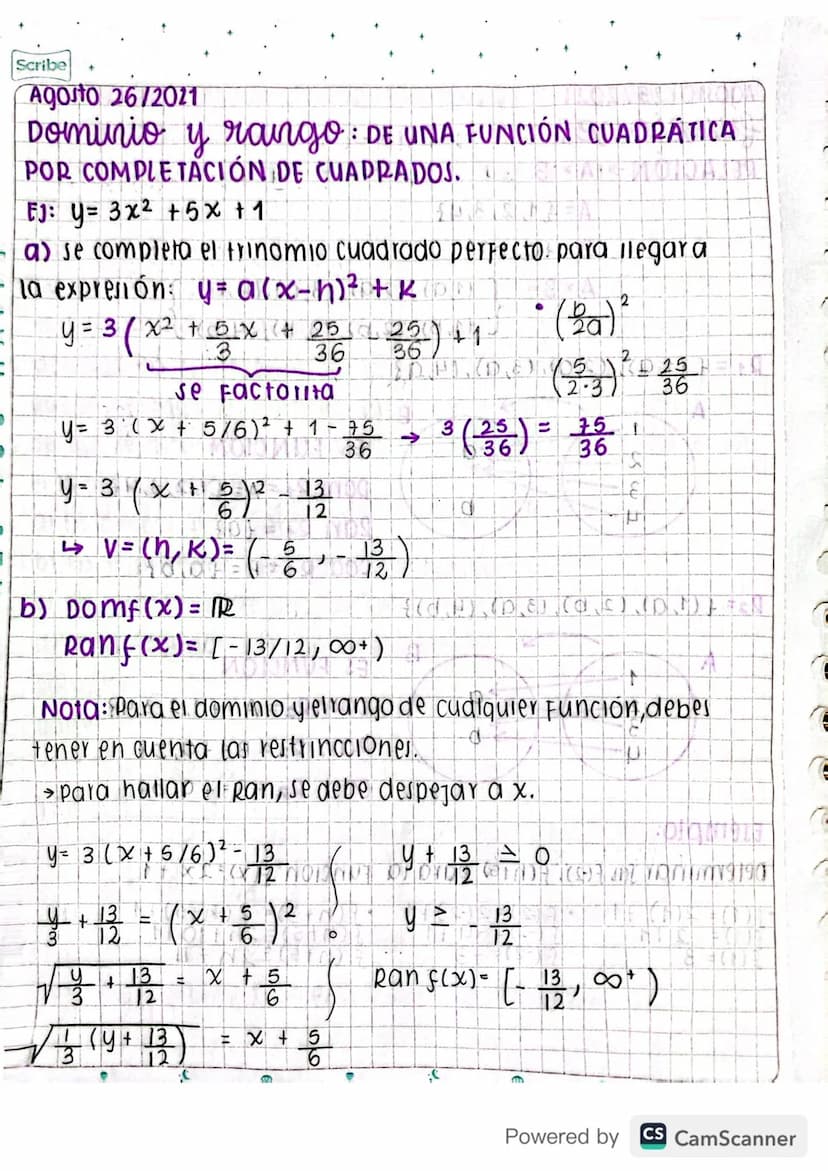 Scribe
Agosto 26/2021
Dominio y rango: DE UNA FUNCIÓN CUADRÁTICA
POR COMPLETACIÓN DE CUADRADOS.
EJ: y = 3x² + 5x + 1
a) se completa el trinomio cuadrado perfecto para llegar a
la expresión: y = a(x-h)² + K
y = 3 ( x² + 5/3 x + 25/36 - 25/36 ) + 1 • (b/2a)²
se factoriza (5/2·3)² = 25/36
y = 3 (x + 5/6)² + 1 - 75/36 → 3 (25/36) = 75/36
y = 3 (x + 5/6)² - 13/12
↳ V = (h, K) = (-5/6, -13/12)
b) Domf(x) = ℝ
Ranf(x) = [-13/12, ∞+)
Nota: Para el dominio y el rango de cualquier función, debes
tener en cuenta las restrincciones.
→ para hallar el Ran, se debe despejar a x.
y = 3 (x + 5/6)² - 13/12 y + 13/12 ≥ 0
y/3 + 13/12 = (x + 5/6)² y ≥ - 13/12
√(y/3 + 13/12) = x + 5/6 Ran f(x) = [-13/12, ∞+)
√(1/3 (y + 13/12)) = x + 5/6
Powered by CS CamScanner